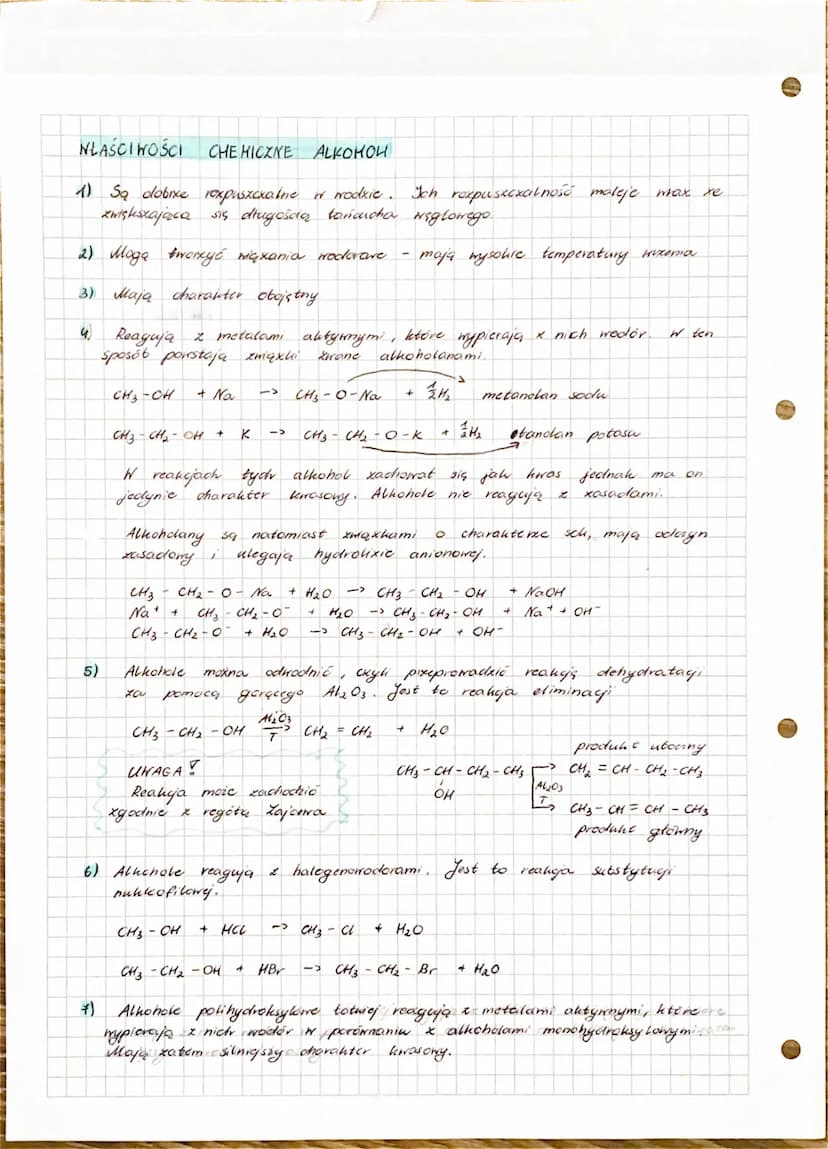 WŁAŚCIWOŚCI CHEMICZNE ALKOHOLI
1) Są dobrze rozpuszczalne w wodzie. Ich rozpuszczalność maleje wraz ze
zwiększającą się długością łańcucha węglowego.
2) Mogą tworzyć wiązania wodorowe - mają wysokie temperatury wrzenia
3) Mają charakter obojętny
4) Reagują z metalami aktywnymi, które wypierają z nich wodór. W ten
sposób powstają związki zwane alkoholanami.
CH₃ - OH + Na -> CH₃ - O - Na + ½H₂ metanolan sodu
CH₃ - CH₂ - OH + K -> CH₃ - CH₂ - O - K + ½H₂ etanolan potasu
W reakcjach tych alkohol zachował się jak kwas jednak ma on
jedynie charakter kwasowy. Alkohole nie reagują z zasadami.
Alkoholany są natomiast związkami o charakterze soli, mają odczyn
zasadowy i ulegają hydrolizie anionowej.
CH₃ - CH₂ - O - Na + H₂O -> CH₃ - CH₂ - OH + NaOH
Na⁺ + CH₃ - CH₂ - O⁻ + H₂O -> CH₃ - CH₂ - OH + Na⁺ + OH⁻
CH₃ - CH₂ - O⁻ + H₂O -> CH₃ - CH₂ - OH + OH⁻
5) Alkohole można odwodnić, czyli przeprowadzić reakcję dehydratacji
za pomocą gorącego Al₂O₃. Jest to reakcja eliminacji
Al₂O₃
CH₃ - CH₂ - OH -> CH₂ = CH₂ + H₂O
T
produkt uboczny
UWAGA! CH₃ - CH - CH₂ - CH₃ -> CH₂ = CH - CH₂ - CH₃
Reakcja może zachodzić OH Al₂O₃
T
zgodnie z regułą Zajcewa -> CH₃ - CH = CH - CH₃
produkt główny
6) Alkohole reagują z halogenowodorami. Jest to reakcja substytucji
nukleofilowej.
CH₃ - OH + HCl -> CH₃ - Cl + H₂O
CH₃ - CH₂ - OH + HBr -> CH₃ - CH₂ - Br + H₂O
7) Alkohole polihydroksylowe łatwiej reagują z metalami aktywnymi, które
wypierają z nich wodór w porównaniu z alkoholami monohydroksylowymi.
Mają zatem silniejszy charakter kwasowy.